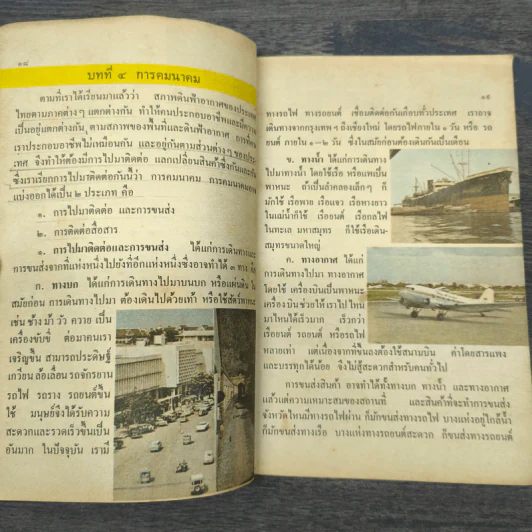 ๑๘
บทที่ ๔ การคมนาคม
ตามที่เราได้เรียนมาแล้วว่า สภาพดินฟ้าอากาศของประเทศ
ไทยตามภาคต่างๆ แตกต่างกัน ทำให้คนประกอบอาชีพและมีความ
เป็นอยู่แตกต่างกัน ตามสภาพของพื้นที่และดินฟ้าอากาศ การที่คน
เราประกอบอาชีพไม่เหมือนกัน และอยู่กันตามส่วนต่างๆ ของประ-
เทศ จึงทำให้ต้องมีการไปมาติดต่อ แลกเปลี่ยนสินค้าซึ่งกันและกัน
ซึ่งเราเรียกการไปมาติดต่อกันนี้ว่า การคมนาคม การคมนาคมอาจ
แบ่งออกได้เป็น ๒ ประเภท คือ
๑. การไปมาติดต่อ และการขนส่ง
๒. การติดต่อสื่อสาร
๑. การไปมาติดต่อและการขนส่ง ได้แก่การเดินทางและ
การขนส่งจากที่แห่งหนึ่งไปยังที่อีกแห่งหนึ่งซึ่งอาจทำได้ ๓ ทาง คือ
ก. ทางบก ได้แก่การเดินทางไปมาบนบก หรือแผ่นดิน ใน
สมัยก่อน การเดินทางไปมา ต้องเดินไปด้วยเท้า หรือใช้สัตว์พาหนะ
เช่น ช้าง ม้า วัว ควาย เป็น
เครื่องขับขี่ ต่อมาคนเรา
เจริญขึ้น สามารถประดิษฐ์
เกวียน ล้อเลื่อน รถจักรยาน
รถไฟ รถราง รถยนต์ขึ้น
ใช้ มนุษย์จึงได้รับความ
สะดวกและรวดเร็วขึ้นเป็น
อันมาก ในปัจจุบัน เรามี
๑๙
ทางรถไฟ ทางรถยนต์ เชื่อมติดต่อกันเกือบทั่วประเทศ เราอาจ
เดินทางจากกรุงเทพฯ ถึงเชียงใหม่ โดยรถไฟภายใน ๑ วัน หรือ รถ
ยนต์ ภายใน ๑–๒ วัน ซึ่งในสมัยก่อนต้องเดินกันเป็นเดือน
ข. ทางน้ำ ได้แก่การเดินทาง
ไปมาทางน้ำ โดยใช้เรือ หรือแพเป็น
พาหนะ ถ้าเป็นลำคลองเล็กๆ ก็
มักใช้ เรือพาย เรือแจว เรือหางยาว
ในแม่น้ำก็ใช้ เรือยนต์ เรือกลไฟ
ในทะเล มหาสมุทร ก็ใช้เรือเดิน-
สมุทรขนาดใหญ่
ค. ทางอากาศ ได้แก่
การเดินทางไปมา ทางอากาศ
โดยใช้ เครื่องบินเป็นพาหนะ
เครื่องบินช่วยให้เราไป ไหน
มาไหนได้เร็วมาก เร็วกว่า
เรือยนต์ รถยนต์ หรือรถไฟ
หลายเท่า แต่เนื่องจากที่ขึ้นลงต้องใช้สนามบิน ค่าโดยสารแพง
และบรรทุกได้น้อย จึงไม่สู้สะดวกสำหรับคนทั่วไป
การขนส่งสินค้า อาจทำได้ทั้งทางบก ทางน้ำ และทางอากาศ
แล้วแต่ความเหมาะสมของสถานที่ และสินค้าที่จะทำการขนส่ง
จังหวัดไหนมีทางรถไฟผ่าน ก็มักขนส่งทางรถไฟ บางแห่งอยู่ใกล้น้ำ
ก็มักขนส่งทางเรือ บางแห่งทางรถยนต์สะดวก ก็ขนส่งทางรถยนต์